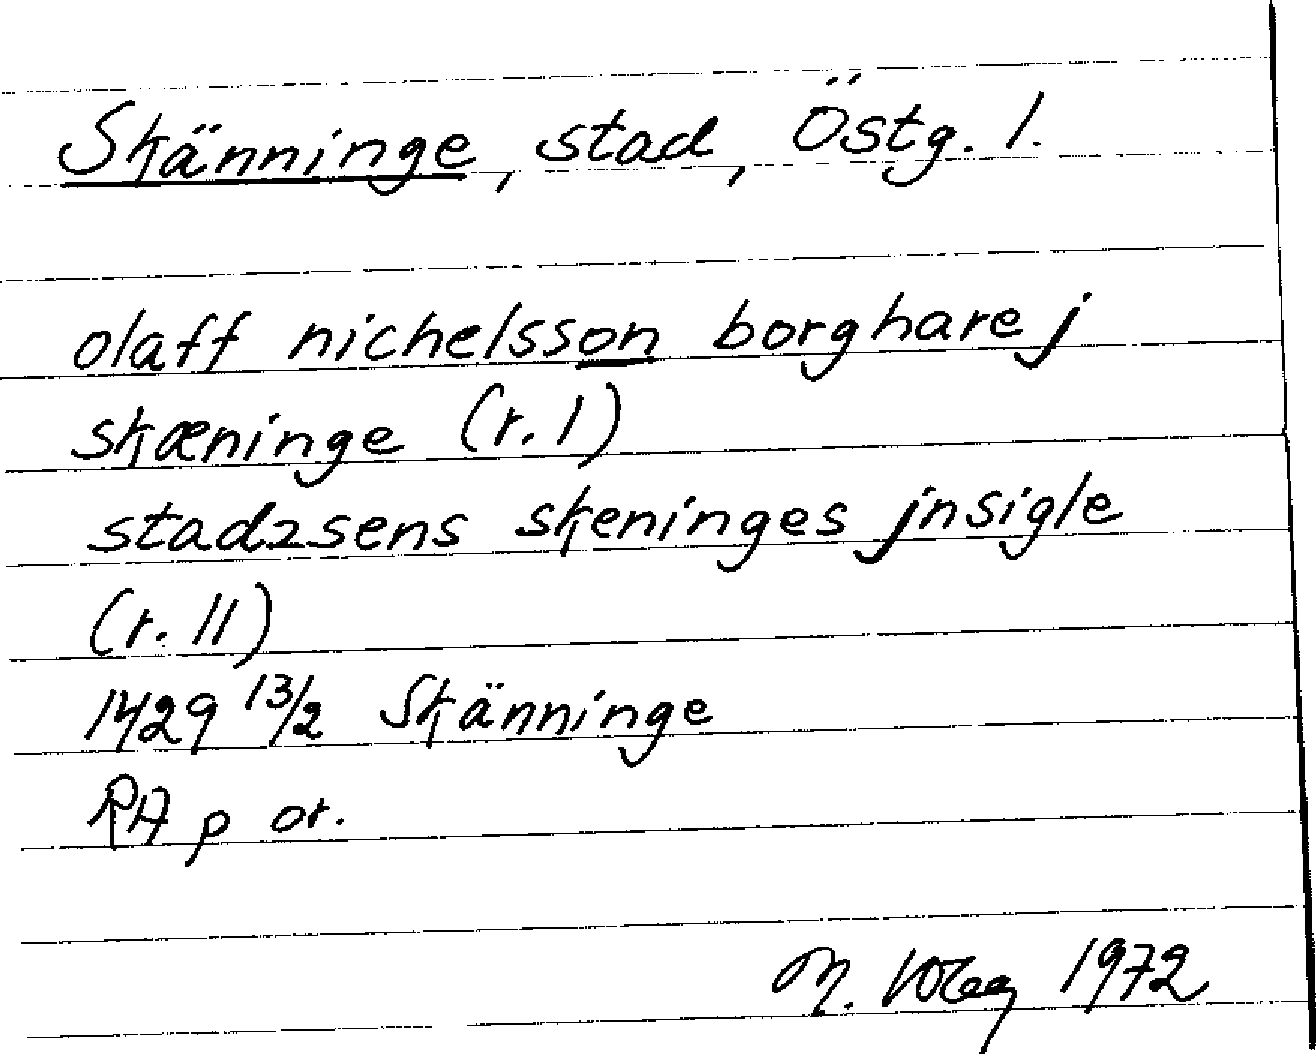 Skänninge, stad, Östg. l.
olaff nichelsson borghare j
skæninge (r. 1)
stadzsens skeninges jnsigle
(r. 11)
1429 13/2 Skänninge
RA p or.
M. 1972